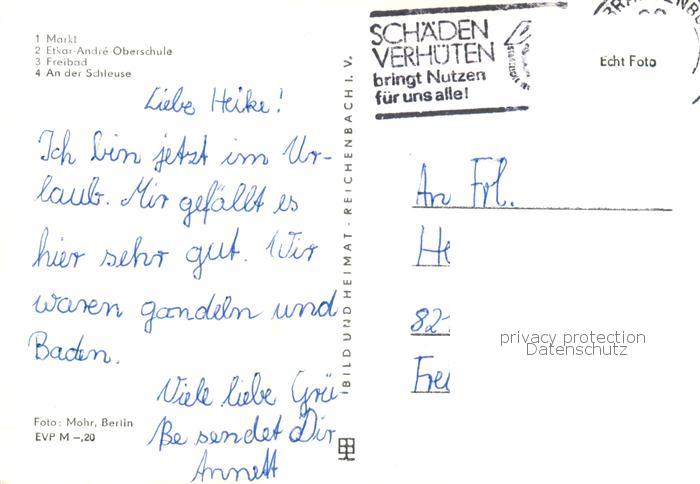 1 Markt
2 Etkar-André-Oberschule
3 Freibad
4 An der Schleuse
Liebe Heike!
Ich bin jetzt im Ur-
laub. Mir gefällt es
hier sehr gut. Wir
waren gondeln und
Baden.
Viele liebe Grü-
ße sendet Dir
Annett
Foto: Mohr, Berlin
EVP M -,20
BILD UND HEIMAT · REICHENBACH I. V.
SCHÄDEN
VERHÜTEN
bringt Nutzen
für uns alle!
Echt Foto
An Frl.
He
82
Fre
privacy protection
Datenschutz